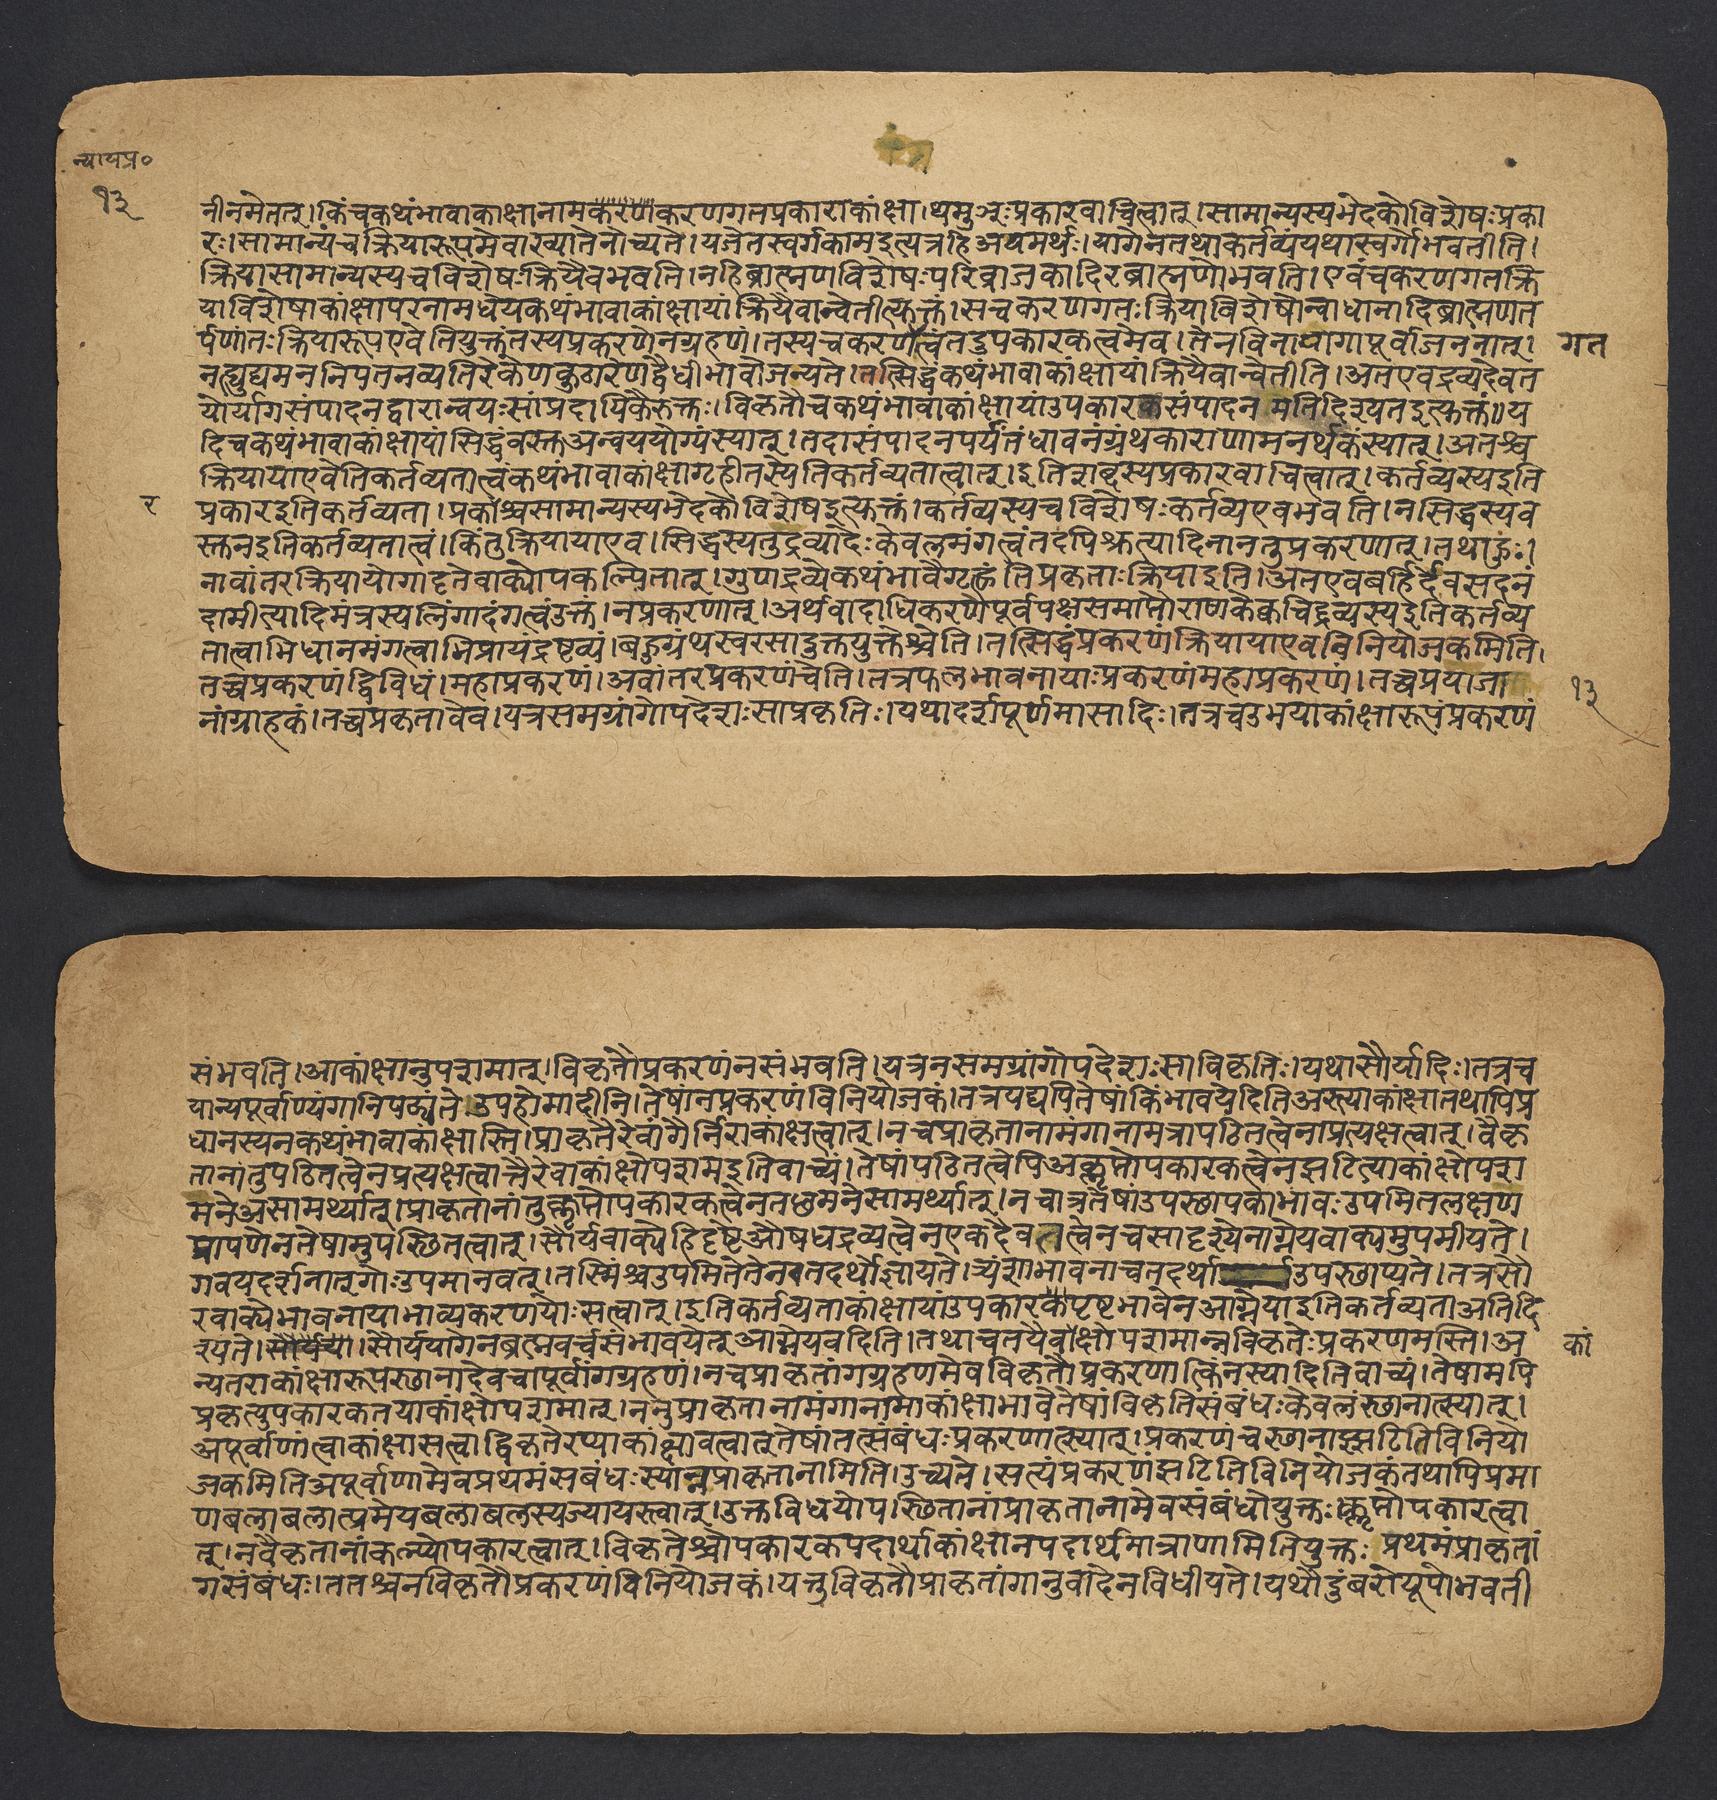 न्यायप्र०
१३
नीनमेतत्।किंचकथंभावाकांक्षानामकरणकरणगतप्रकाराकांक्षा।थमुञःप्रकारवाचित्वात्।सामान्यस्यभेदकोविशेषःप्रका
रः।सामान्यंचक्रियारूपमेवाख्यातेनोच्यते।यजेतस्वर्गकामइत्यत्रहिअयमर्थः।यागेनतथाकर्तव्यंयथास्वर्गोभवतीति।
क्रियासामान्यस्यचविशेषःक्रियैवभवति।नहिब्राह्मणविशेषःपरिव्राजकादिरब्राह्मणोभवति।एवंचकरणगतक्रि
याविशेषाकांक्षापरनामधेयकथंभावाकांक्षायांक्रियैवान्वेतीत्युक्तं।सचकरणगतःक्रियाविशेषोन्वाधानादिब्राह्मणत
र्पणांतःक्रियारूपएवेतियुक्तंतस्यप्रकरणेनग्रहणं।तस्यचकरणत्वंतदुपकारकत्वमेव।तेनविनायागापूर्वाजननात्।
गत
नह्युद्यमननिपतनव्यतिरेकेणकुठारेणद्वैधीभावोजन्यते।तत्सिद्धंकथंभावाकांक्षायांक्रियैवान्वेतीति।अतएवद्रव्यदेवत
योर्यागसंपादनद्वारान्वयःसांप्रदायिकैरुक्तः।विकृतौचकथंभावाकांक्षायांउपकारकसंपादनमतिदिश्यतइत्युक्तं॥य
दिचकथंभावाकांक्षायांसिद्धंवस्तुअन्वययोग्यंस्यात्।तदासंपादनपर्यंतंधावनंग्रंथकाराणामनर्थकंस्यात्।अतश्च
क्रियायाएवेतिकर्तव्यतात्वंकथंभावाकांक्षागृहीतस्येतिकर्तव्यतात्वात्।इतिशब्दस्यप्रकारवाचित्वात्।कर्तव्यस्यइति
र
प्रकारइतिकर्तव्यता।प्रकाश्चसामान्यस्यभेदकोविशेषइत्युक्तं।कर्तव्यस्यचविशेषःकर्तव्यएवभवति।नसिद्धस्यव
स्तुनइतिकर्तव्यतात्वं।किंतुक्रियायाएव।सिद्धस्यतुद्रव्यादेःकेवलमंगत्वंतदपिश्रुत्यादिनानतुप्रकरणात्।तथाहुः।
नावांतरक्रियायोगादृतेवाक्योपकल्पितात्।गुणद्रव्येकथंभावैर्गृह्णंतिप्रकृताःक्रियाइति।अतएवबर्हिर्देवसदनं
दामीत्यादिमंत्रस्यलिंगादंगत्वंउक्तं।नप्रकरणात्।अर्थवादाधिकरणेपूर्वपक्षसमाप्तौराणकेक्वचिद्द्रव्यस्यइतिकर्तव्य
तात्वाभिधानमंगत्वाभिप्रायंद्रष्टव्यं।बहुग्रंथस्वरसादुक्तयुक्तेश्चेति।तत्सिद्धंप्रकरणंक्रियायाएवविनियोजकमिति।
तच्चप्रकरणंद्विविधं।महाप्रकरणं।अवांतरप्रकरणंचेति।तत्रफलभावनायाःप्रकरणंमहाप्रकरणं।तच्चप्रयाजा
१३
नांग्राहकं।तच्चप्रकृतावेव।यत्रसमग्रांगोपदेशःसाप्रकृतिः।यथादर्शपूर्णमासादिः।तत्रचउभयाकांक्षारूपंप्रकरणं
संभवति।आकांक्षानुपरामात्।विकृतौप्रकरणंनसंभवति।यत्रनसमग्रांगोपदेशःसाविकृतिः।यथासौर्यादिः।तत्रच
यान्यपूर्वाण्यंगानिपठ्यंते।उपहोमादीनि।तेषांनप्रकरणंविनियोजकं।तत्रयद्यपितेषांकिंभावयेदितिअस्त्याकांक्षातथापिप्र
धानस्यनकथंभावाकांक्षास्ति।प्राकृतैरेवांगैर्निराकांक्षत्वात्।नचप्राकृतानामंगानामत्रापठितत्वेनाप्रत्यक्षत्वात्।वैकृ
तानांतुपठितत्वेनप्रत्यक्षत्वात्तैरेवाकांक्षोपरामइतिवाच्यं।तेषांपठितत्वेपिअक्लृप्तोपकारकत्वेनझटित्याकांक्षोपश
मनेअसामर्थ्यात्।प्राकृतानांतुक्लृप्तोपकारकत्वेनतछमनेसामर्थ्यात्।नचात्रतेषांउपस्थापकाभावःउपमितलक्षण
प्रापणेनतेषामुपस्थितत्वात्।सौर्यवाक्येहिदृष्टेऔषधद्रव्यत्वेनएकदैवतत्वेनचसादृश्येनाग्नेयवाक्यमुपमीयते।
गवयदर्शनात्गोःउपमानवत्।तस्मिंश्चउपमितेतेनतदर्थोज्ञायते।त्र्यंशाभावनाच्चतदर्थाउपस्थाप्यते।तत्रसौ
र्यवाक्येभावनायाभाव्यकरणयोःसत्वात्।इतिकर्तव्यताकांक्षायांउपकारकपृष्टभावेनआग्नेयाइतिकर्तव्यताअतिदि
श्यते।सौर्यया।सौर्ययागेनब्रह्मवर्चसंभावयेत्आग्नेयवदिति।तथाचतयैवाक्षोपरामान्नविकृतेःप्रकरणमस्ति।अ
कां
न्यतराकांक्षारूपस्थानादेवचापूर्वांगग्रहणं।नचप्राकृतांगग्रहणमेवविकृतौप्रकरणात्किंनस्यादितिवाच्यं।तेषामपि
प्रकृत्युपकारकतयाकांक्षोपरामात्।ननुप्राकृतानामंगानामाकांक्षाभावेतेषांविकृतिसंबंधःकेवलंस्थानात्स्यात्।
अपूर्वाणांत्वाकांक्षासत्वाद्विकृतेरप्याकांक्षावत्वात्तेषांतत्संबंधःप्रकरणात्स्यात्।प्रकरणंचस्थानाझ्झटितिविनियो
जकमितिअपूर्वाणामेवप्रथमंसबंधःस्यान्नप्राकृतानामिति।उच्यते।सत्यंप्रकरणंझटितिविनियोजकंतथापिप्रमा
णबलाबलात्प्रमेयबलाबलस्यज्यायस्त्वात्।उक्तविधयोपस्थितानांप्राकृतानामेवसंबंधोयुक्तःक्लृप्तोपकारत्वा
त्।नवैकृतानांकल्प्योपकारत्वात्।विकृतेश्चोपकारकपदार्थाकांक्षानपदार्थमात्राणामितियुक्तःप्रथमंप्राकृतां
गसंबंधः।ततश्चनविकृतौप्रकरणंविनियोजकं।यत्तुविकृतौप्राकृतांगानुवादेनविधीयते।यथौदुंबरोयूपोभवती